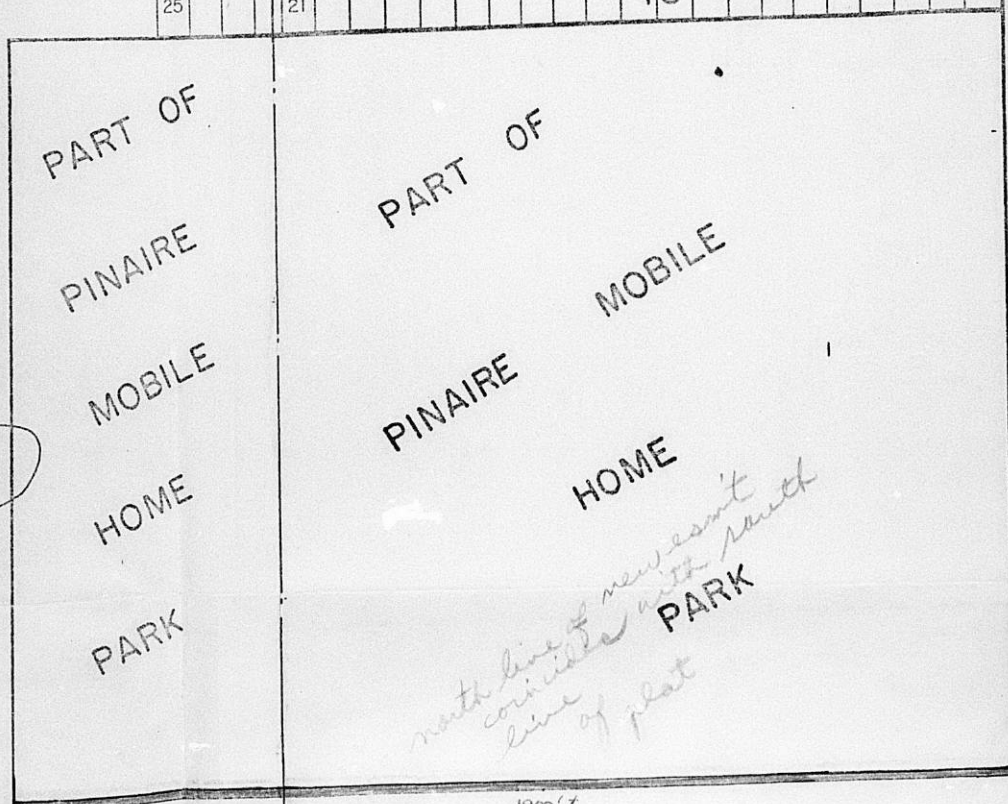 25
21
PART OF
PINAIRE
MOBILE
HOME
PARK
PART OF
MOBILE
PINAIRE
HOME
PARK
north line of new esm't
coincides with south
line
of plat